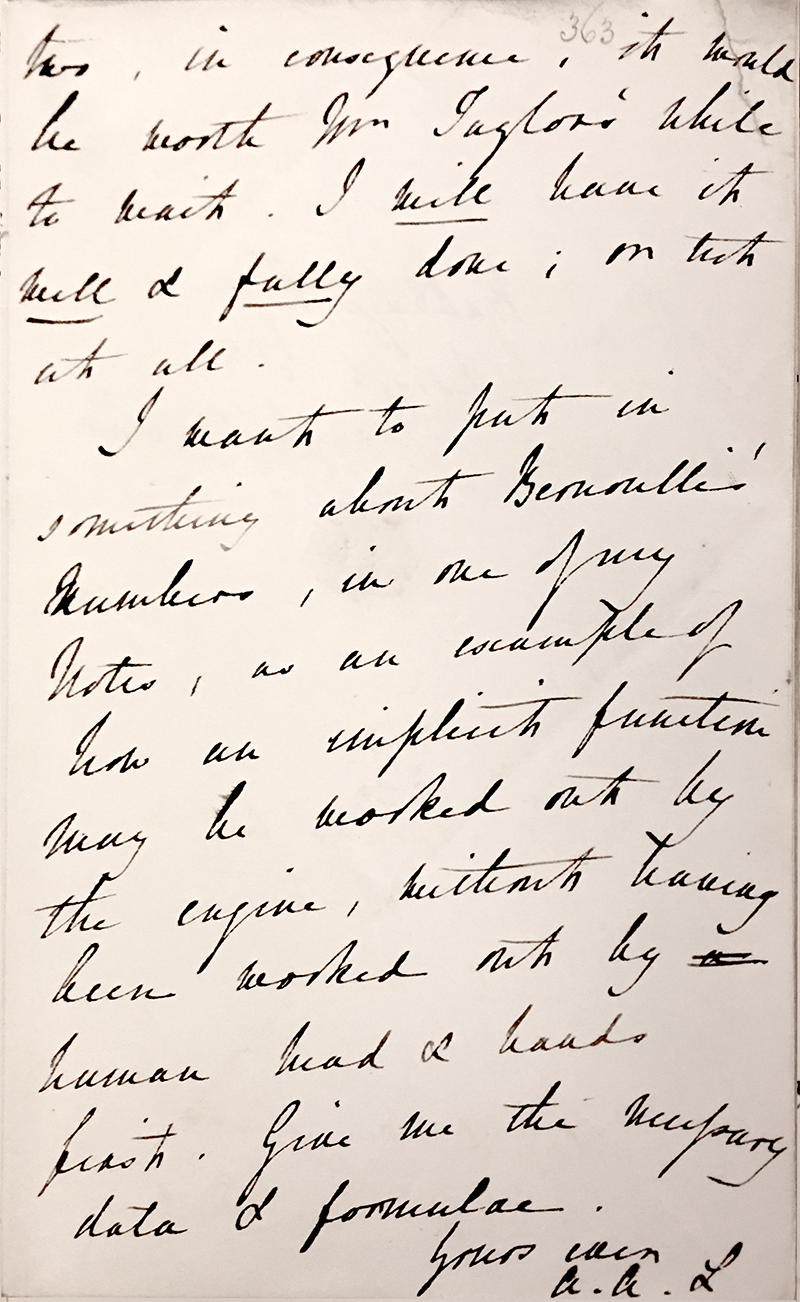 363
two, in consequence, it would
be worth Mr Taylor's while
to wait. I will have it
well & fully done; or not
at all.
I want to put in
something about Bernouilli's
Numbers, in one of my
Notes, as an example of
how an implicit function
may be worked out by
the engine, without having
been worked out by a
human head & hands
first. Give me the necessary
data & formulae.
Yours ever
A.A.L